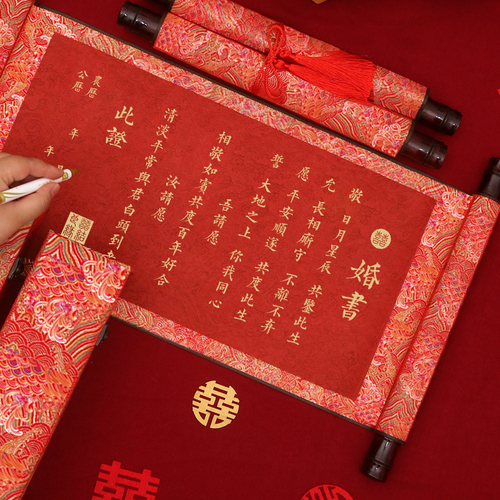 囍
婚書
敬 日月星辰 共鑒此生
允 長相廝守 不離不弃
愿 平安順遂 共度此生
誓 大地之上 你我同心
吾請愿
相敬如賓共度百年好合
汝請愿
清淡平當與君白頭到
此證
農歷 年 月
公歷 年
囍
囍